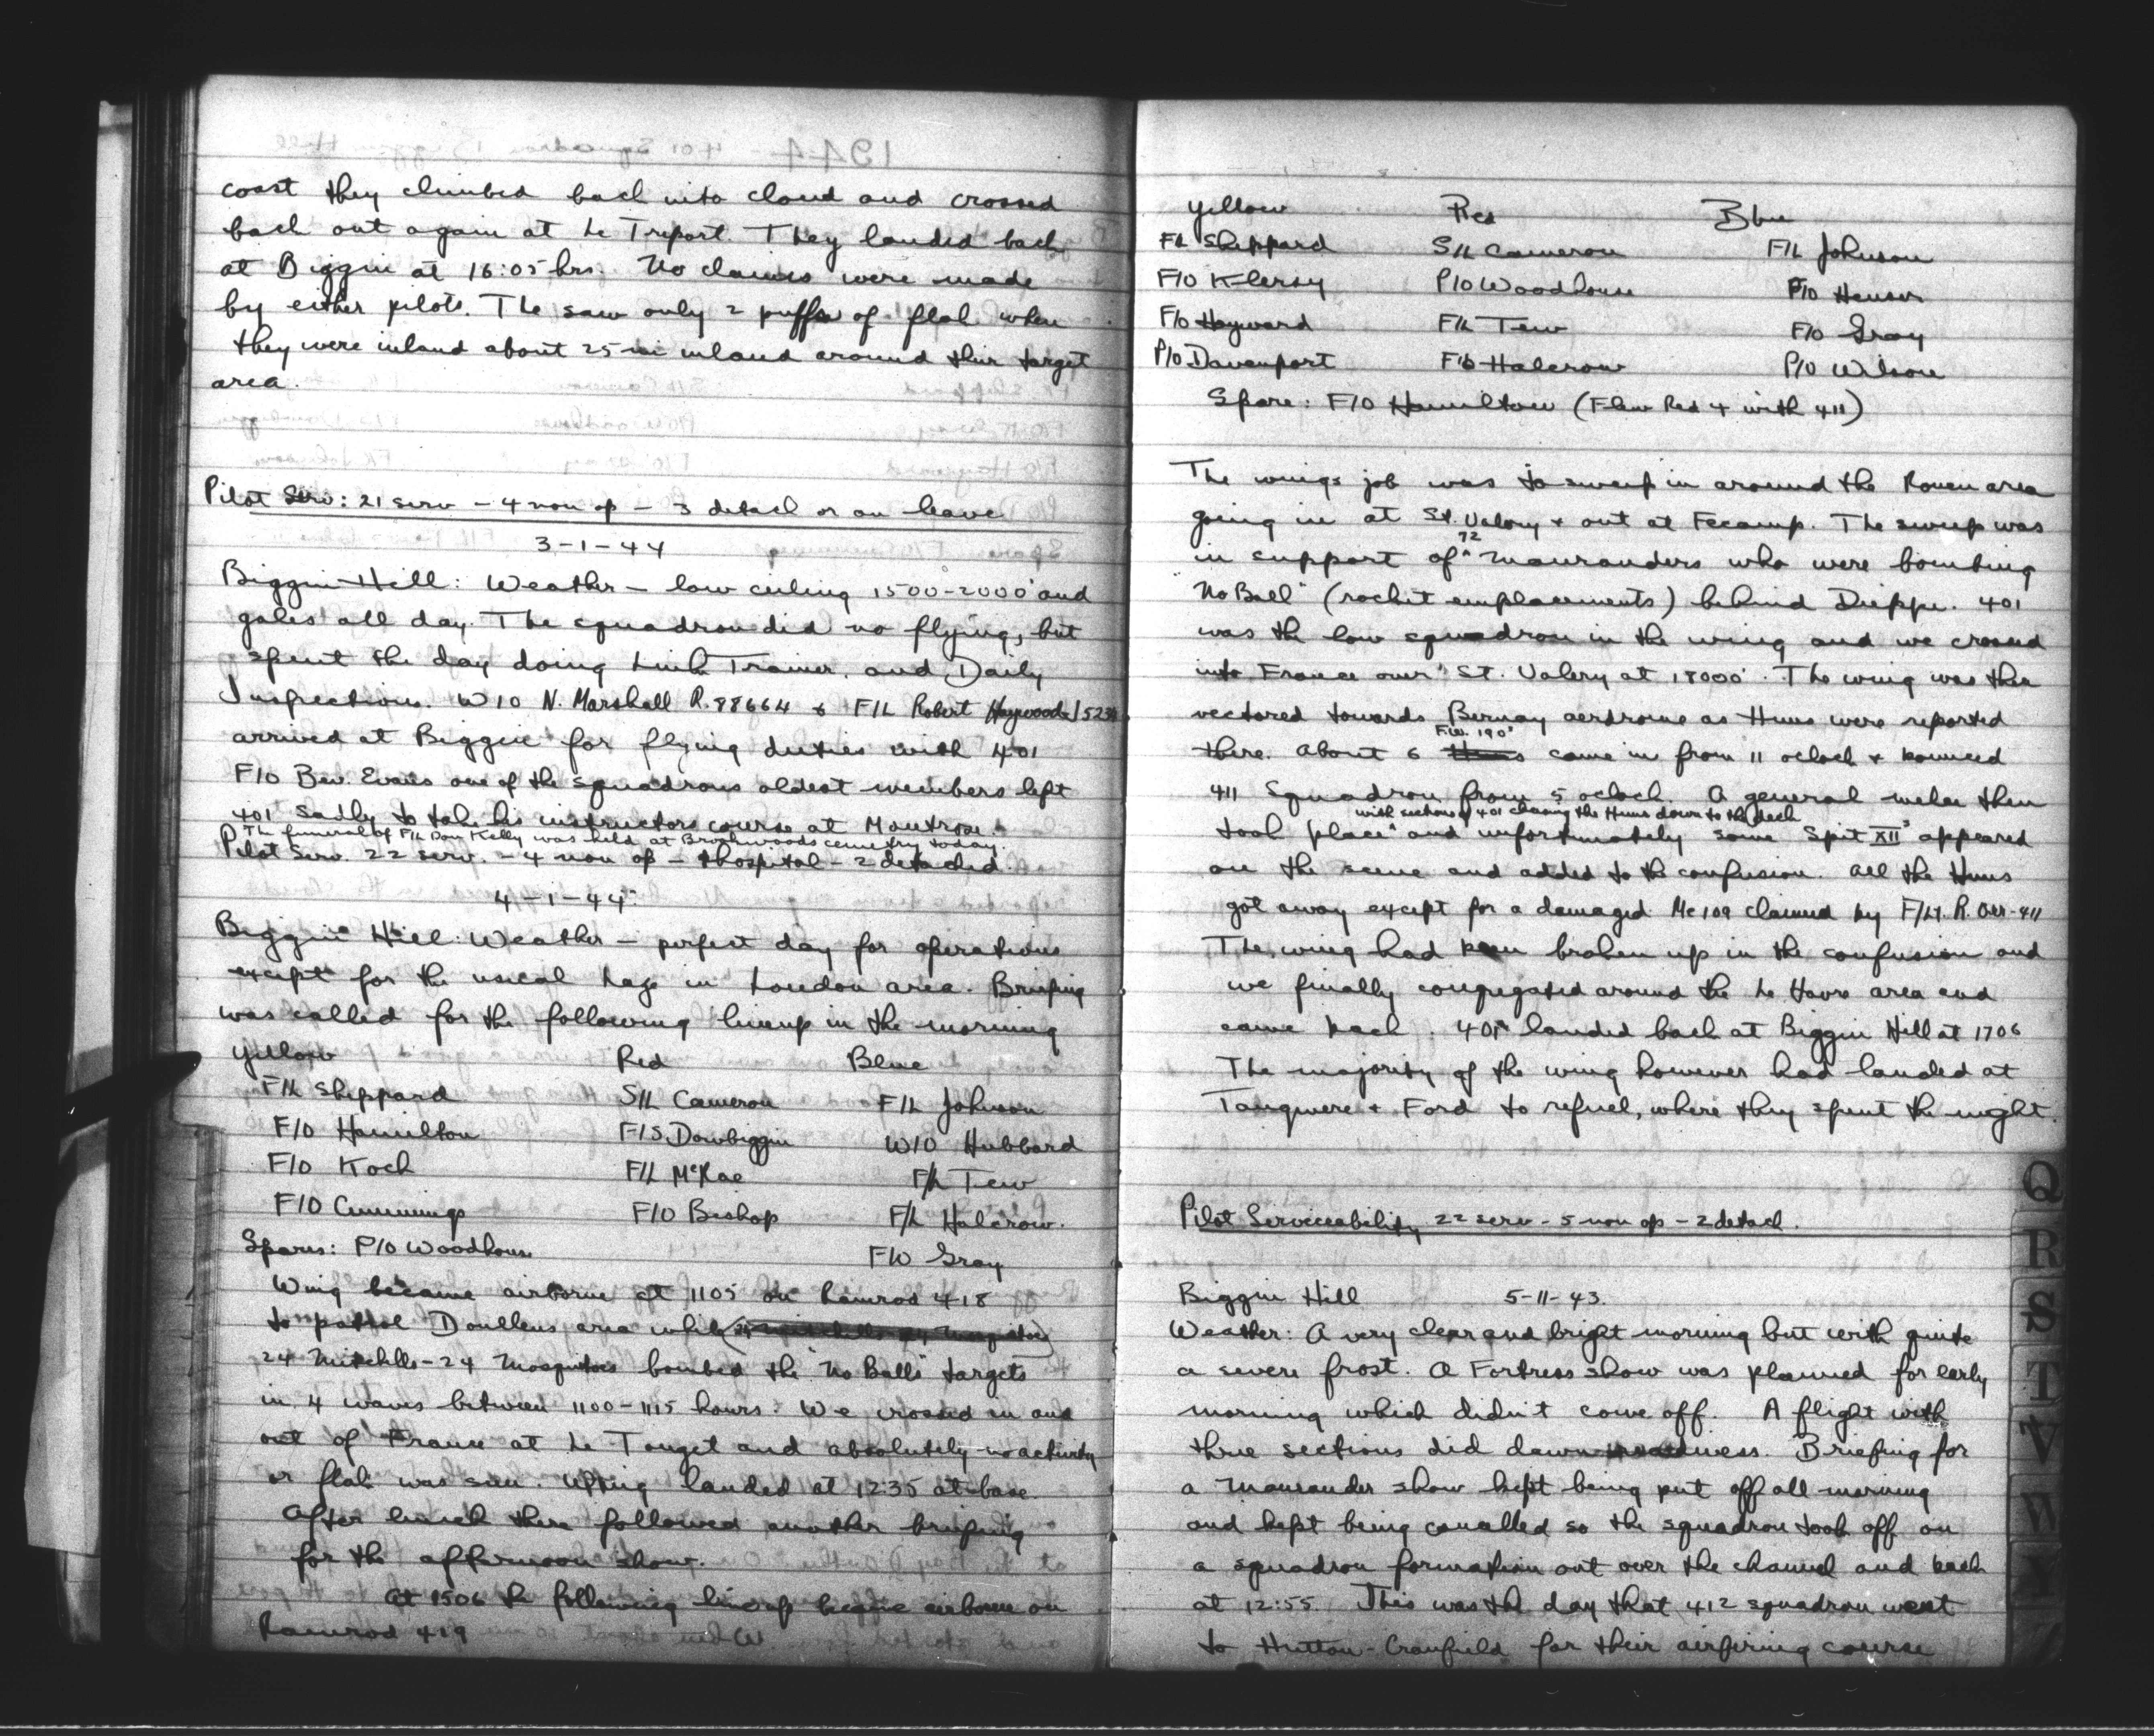 coast they climbed back into cloud and crossed
back out again at Le Treport. They landed back
at Biggin at 16:05 hrs. No claims were made
by either pilots. The saw only 2 puffs of flak when
they were inland about 25 mi inland around their target
area.
Pilot Serv: 21 serv - 4 non op - 3 detach or on leave
3-1-44
Biggin Hill: Weather - low ceiling 1500-2000' and
gales all day. The squadron did no flying, but
spent the day doing Link Trainer, and Daily
Inspections. W/O N. Marshall R.88664 & F/L Robert Haywood J523
arrived at Biggin for flying duties with 401
F/O Bev. Evans one of the squadrons oldest members left
401 sadly to take his instructors course at Montrose.
The funeral of F/L Don Kelly was held at Brookwoods cemetry today.
Pilot Serv. 22 serv. - 4 non op - hospital - 2 detached.
4-1-44
Biggin Hill: Weather - perfect day for operations
except for the usual haze in London area. Briefing
was called for the following lineup in the morning
Yellow Red Blue
F/L Sheppard S/L Cameron F/L Johnson
F/O Hamilton F/S Dowbiggin W/O Hubbard
F/O Koch F/L McRae F/L Tew
F/O Cummings F/O Bishop F/L Halcrow.
Spares: P/O Woodhouse F/O Gray
Wing became airborne at 1105 on Ramrod 418
to patrol Doullens area while
24 Mitchells - 24 Mosquitoes bombed the "No Balls" targets
in 4 waves between 1100-1115 hours. We crossed in and
out of France at Le Touqet and absolutely no activity
or flak was seen. Wing landed at 12:35 at base.
After lunch there followed another briefing
for the afternoon show.
At 1506 the following lineup became airborne on
Ramrod 419
Yellow Red Blue
F/L Sheppard S/L Cameron F/L Johnson
F/O Klersy P/O Woodhouse F/O Heuser
F/O Hayward F/L Tew F/O Gray
P/O Davenport F/O Halcrow P/O Wilson
Spare: F/O Hamilton (Flew Red 4 with 411)
The wings job was to sweep in around the Rouen area
going in at St. Valery & out at Fecamp. The sweep was
in support of 72 Maurauders who were bombing
"No Ball" (rocket emplacements) behind Dieppe. 401
was the low squadron in the wing and we crossed
into France over St. Valery at 18000'. The wing was then
vectored towards Bernay aerdrome as Huns were reported
there. About 6 F.W. 190's came in from 11 oclock & bounced
411 Squadron from 5 oclock. A general melee then
took place with sections of 401 chasing the Huns down to the deck and unfortunately some Spit XII's appeared
on the scene and added to the confusion. All the Huns
got away except for a damaged Me 109 claimed by F/Lt. R. Orr - 411
The wing had been broken up in the confusion and
we finally congregated around the Le Havre area and
came back. 401 landed back at Biggin Hill at 1706
The majority of the wing however had landed at
Tangmere & Ford to refuel, where they spent the night.
Pilot Serviceability 22 serv - 5 non op - 2 detach.
Biggin Hill 5-11-43.
Weather: A very clear and bright morning but with quite
a severe frost. A Fortress show was planned for early
morning which didn't come off. A flight with
three sections did dawn readiness. Briefing for
a Maurauder show kept being put off all morning
and kept being cancelled so the squadron took off on
a squadron formation out over the channel and back
at 12:55. This was the day that 412 squadron went
to Hutton-Cranfield for their airfiring course
Q
R
S
T
V
W
Y
Z